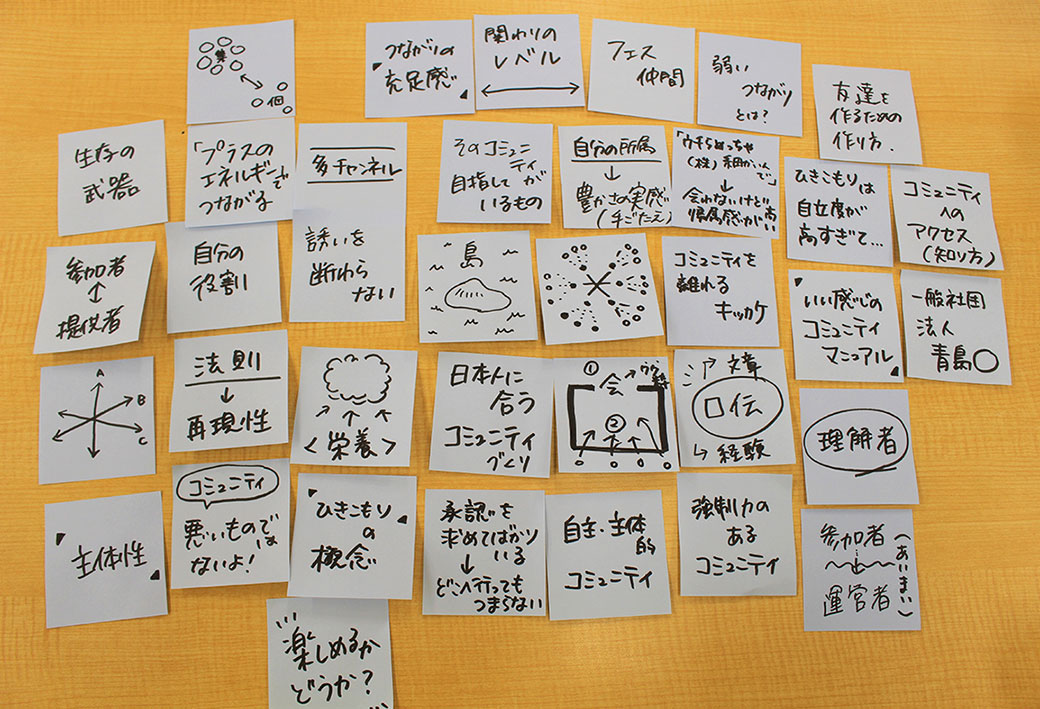 集
個
「つながりの
充足感」
関わりの
レベル
フェス
仲間
弱い
つながり
とは?
友達を
作るための
作り方.
生存の
武器
「プラスの
エネルギーで
つながる
多チャンネル
誘いを
断わら
ない
そのコミュニ
ティ
目指して が
いるもの
自分の所属
↓
豊かさの実感
(手ごたえ)
「ウチらめっちゃ
(株)
で」
↓
会えないけど
帰属感が高い
ひきこもりは
自立度が
高すぎて…
コミュニティ
への
アクセス
(知り方)
参加者
↕
提供者
自分の
役割
島
コミュニティを
離れる
キッカケ
「いい感じの
コミュニティ
マニュアル」
一般社団
法人
青島〇
A
B
C
法則
↓
再現性
<栄養>
日本人に
合う
コミュニティ
づくり
①
会
②
文章
口伝
経験
理解者
「主体性」
コミュニティ
悪いものでは
ないよ!
「ひきこもり
の
概念」
承認を
求めてばかり
いる
↓
どこへ行っても
つまらない
自主・主体
的
コミュニティ
強制力の
ある
コミュニティ
参加者
運営者
(あいまい)
楽しめるか
どうか?